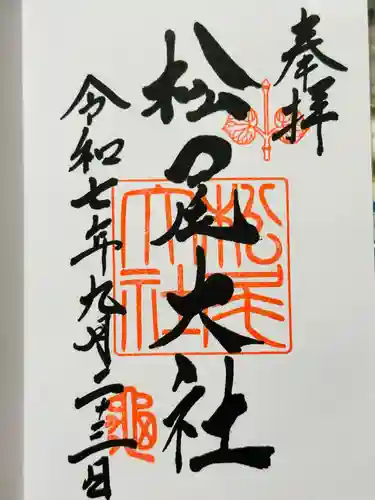 奉拝
松尾大社
松尾大社
令和七年九月二十三日